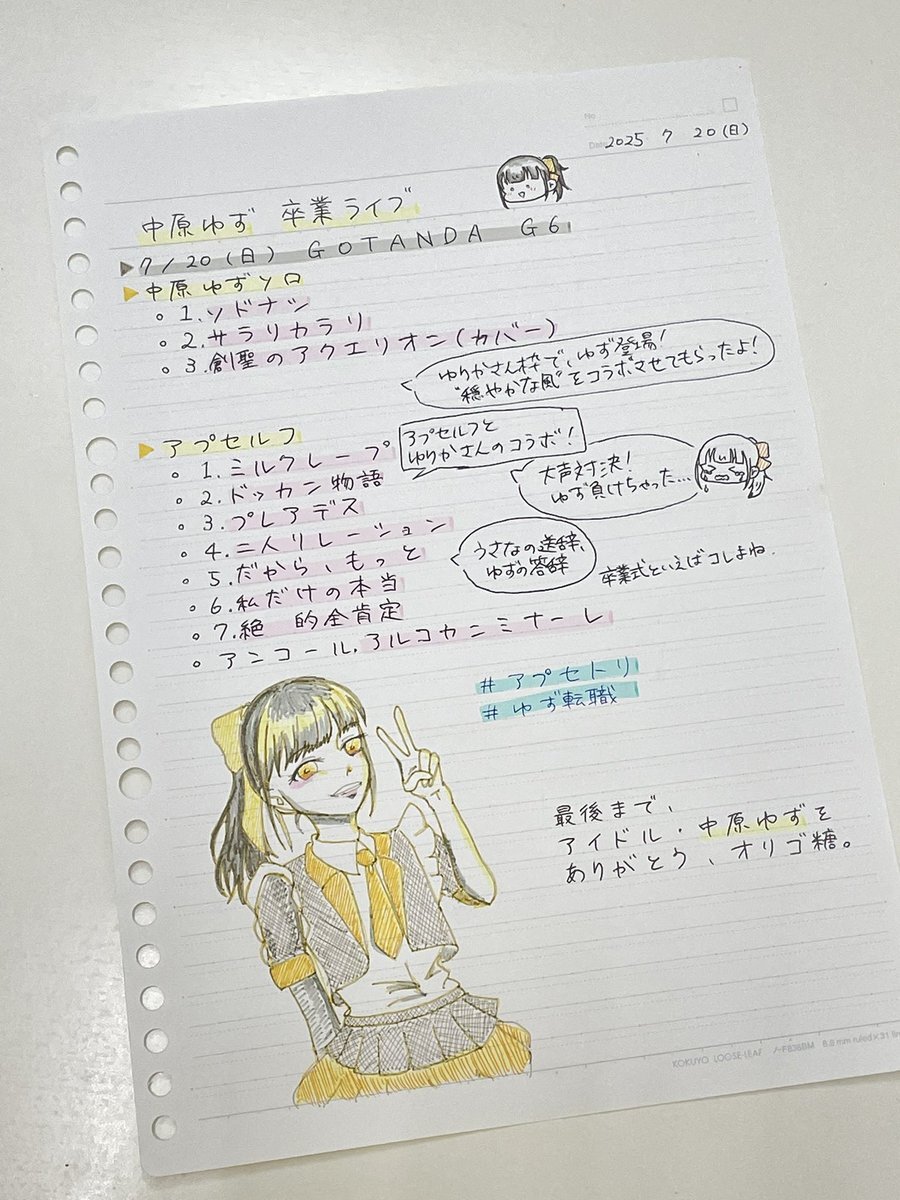 No
Date 2025 7 20(日)
中原ゆず 卒業ライブ
▶7/20(日) GOTANDA G6
▶中原ゆずソロ
。1.ソドナツ
。2.サラリカラリ
。3.創聖のアクエリオン(カバー)
ゆりかさん枠で、ゆず登場!
"穏やかな風"をコラボさせてもらったよ!
▶アプセルフ
アプセルフと
ゆりかさんのコラボ!
。1.ミルクレープ
。2.ドッカン物語
。3.プレアデス
大声対決!
ゆず負けちゃった…
。4.二人リレーション
。5.だから、もっと
うさなの送辞、
ゆずの答辞
卒業式といえばコレよね.
。6.私だけの本当
。7.絶 的全肯定
。アンコール.アルコカンミナーレ
#アプセトリ
#ゆず転職
最後まで、
アイドル・中原ゆずを
ありがとう、オリゴ糖。
KOKUYO LOOSE-LEAF ノ-F836BM 8.6 mm ruled×31